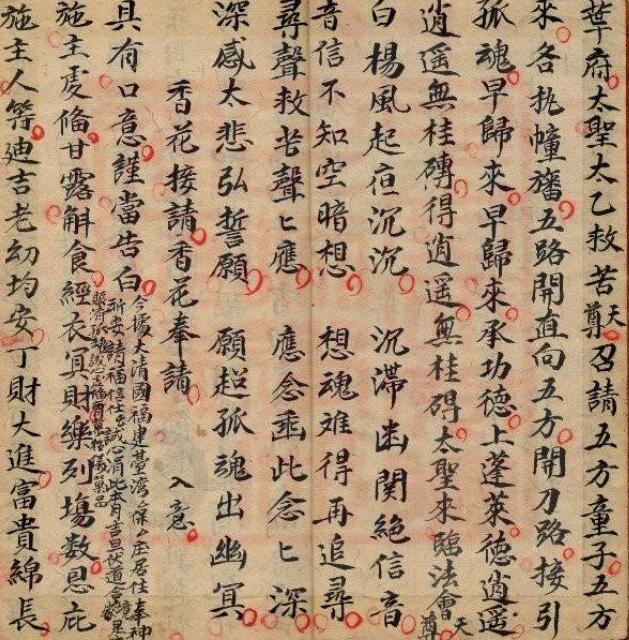 華府太聖太乙救苦天尊召請五方童子五方
來各執幢旛五路開直向五方開刀路接引
孤魂早歸來早歸來承功德上蓬萊德逍遥
逍遥無桂磚得逍遥無桂碍太聖來臨法會天尊
白楊風起沉沉 沉滯幽関絶信音
音信不知空暗想 想魂难得再追尋
尋聲救苦聲匕應 應念垂此念匕深
深感太悲弘誓願 願超孤魂出幽冥
香花接請香花奉請 入意
具有口意謹當告白
今據大清國福建臺湾保厶庄居住奉神
施主虔俻甘露斛食經衣冥財樂列塲数恩庇
施主人等廸吉老幼均安丁財大進富貴綿長